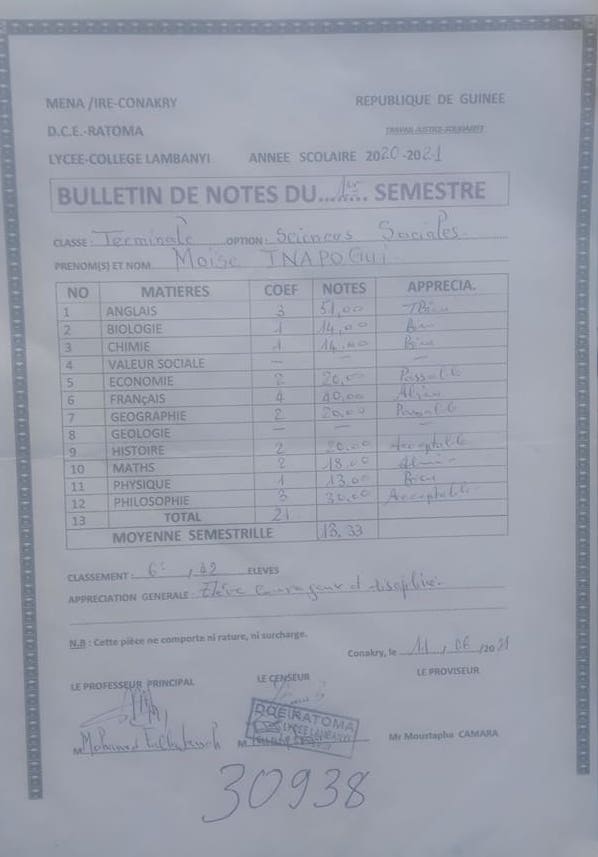 MENA /IRE-CONAKRY REPUBLIQUE DE GUINEE
D.C.E.-RATOMA TRAVAIL-JUSTICE-SOLIDARITE
LYCEE-COLLEGE LAMBANYI ANNEE SCOLAIRE 2020-2021
BULLETIN DE NOTES DU...1er... SEMESTRE
CLASSE: Terminale OPTION: Sciences Sociales
PRENOM(S) ET NOM Moise INAPOGUI
NO MATIERES COEF NOTES APPRECIA.
1 ANGLAIS 3 51,00 TBien
2 BIOLOGIE 1 14,00 Bien
3 CHIMIE 1 14,00 Bien
4 VALEUR SOCIALE — — —
5 ECONOMIE 2 20,00 Passable
6 FRANçAIS 4 40,00
7 GEOGRAPHIE 2 20,00 Passable
8 GEOLOGIE — — —
9 HISTOIRE 2 20,00 Acceptable
10 MATHS 2 18,00
11 PHYSIQUE 1 13,00 Bien
12 PHILOSOPHIE 3 30,00 Acceptable
13 TOTAL 21
MOYENNE SEMESTRILLE 13,33
CLASSEMENT: 6e / 42 ELEVES
APPRECIATION GENERALE: Elève courageux et
N.B : Cette pièce ne comporte ni rature, ni surcharge.
Conakry, le 11 / 06 /2021
LE PROFESSEUR PRINCIPAL LE CENSEUR LE PROVISEUR
DCE RATOMA
LYCEE LAMBANYI
M Mohamed M Mr Moustapha CAMARA
30938